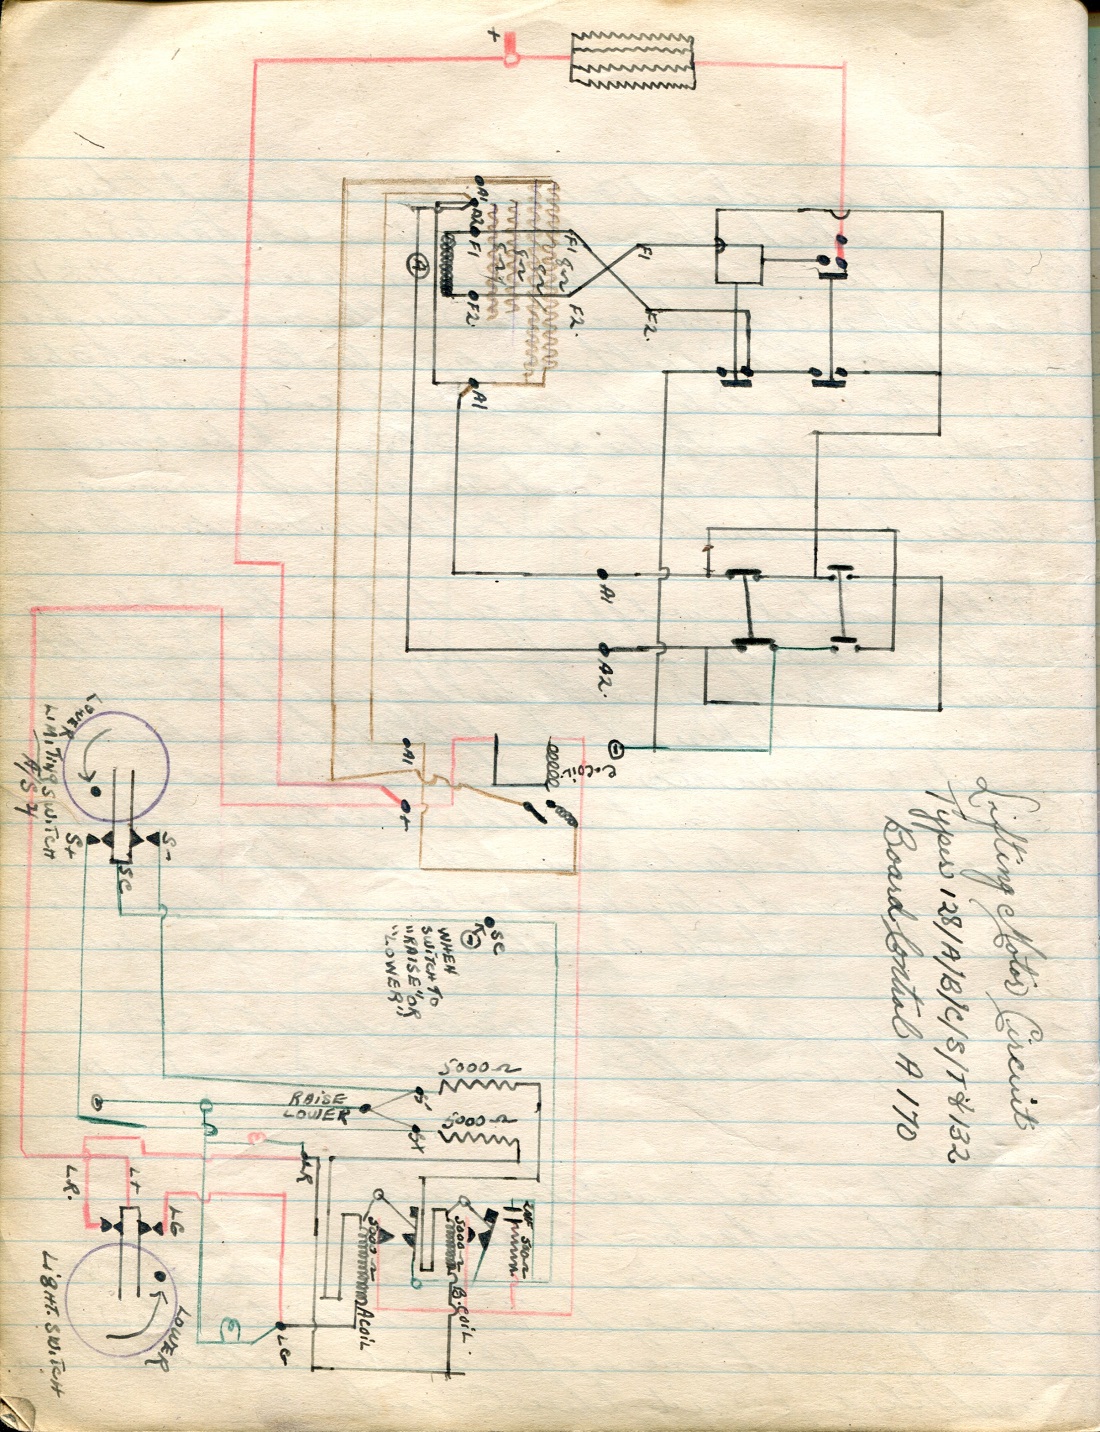 Lifting Motor Circuit
Types 128/A/B/C/S/T & 132
Board Control A 170
+
A1
A2
F1
F2.
A
A1
8Ω
8Ω
8Ω
8Ω
F1
F2.
F1
F2.
A1
A2.
−
A1
+
C.COIL
LOWER
LIMITING SWITCH
A/S 4
S+
S-
SC
SC
−
WHEN
SWITCH TO
"RAISE" OR
"LOWER"
5000Ω
5000Ω
S-
S+
RAISE
LOWER
LR
L.R.
L+
LG
LOWER
LIGHT. SWITCH
2MF 500Ω
5000Ω
B.COIL.
5000Ω
A COIL
LG